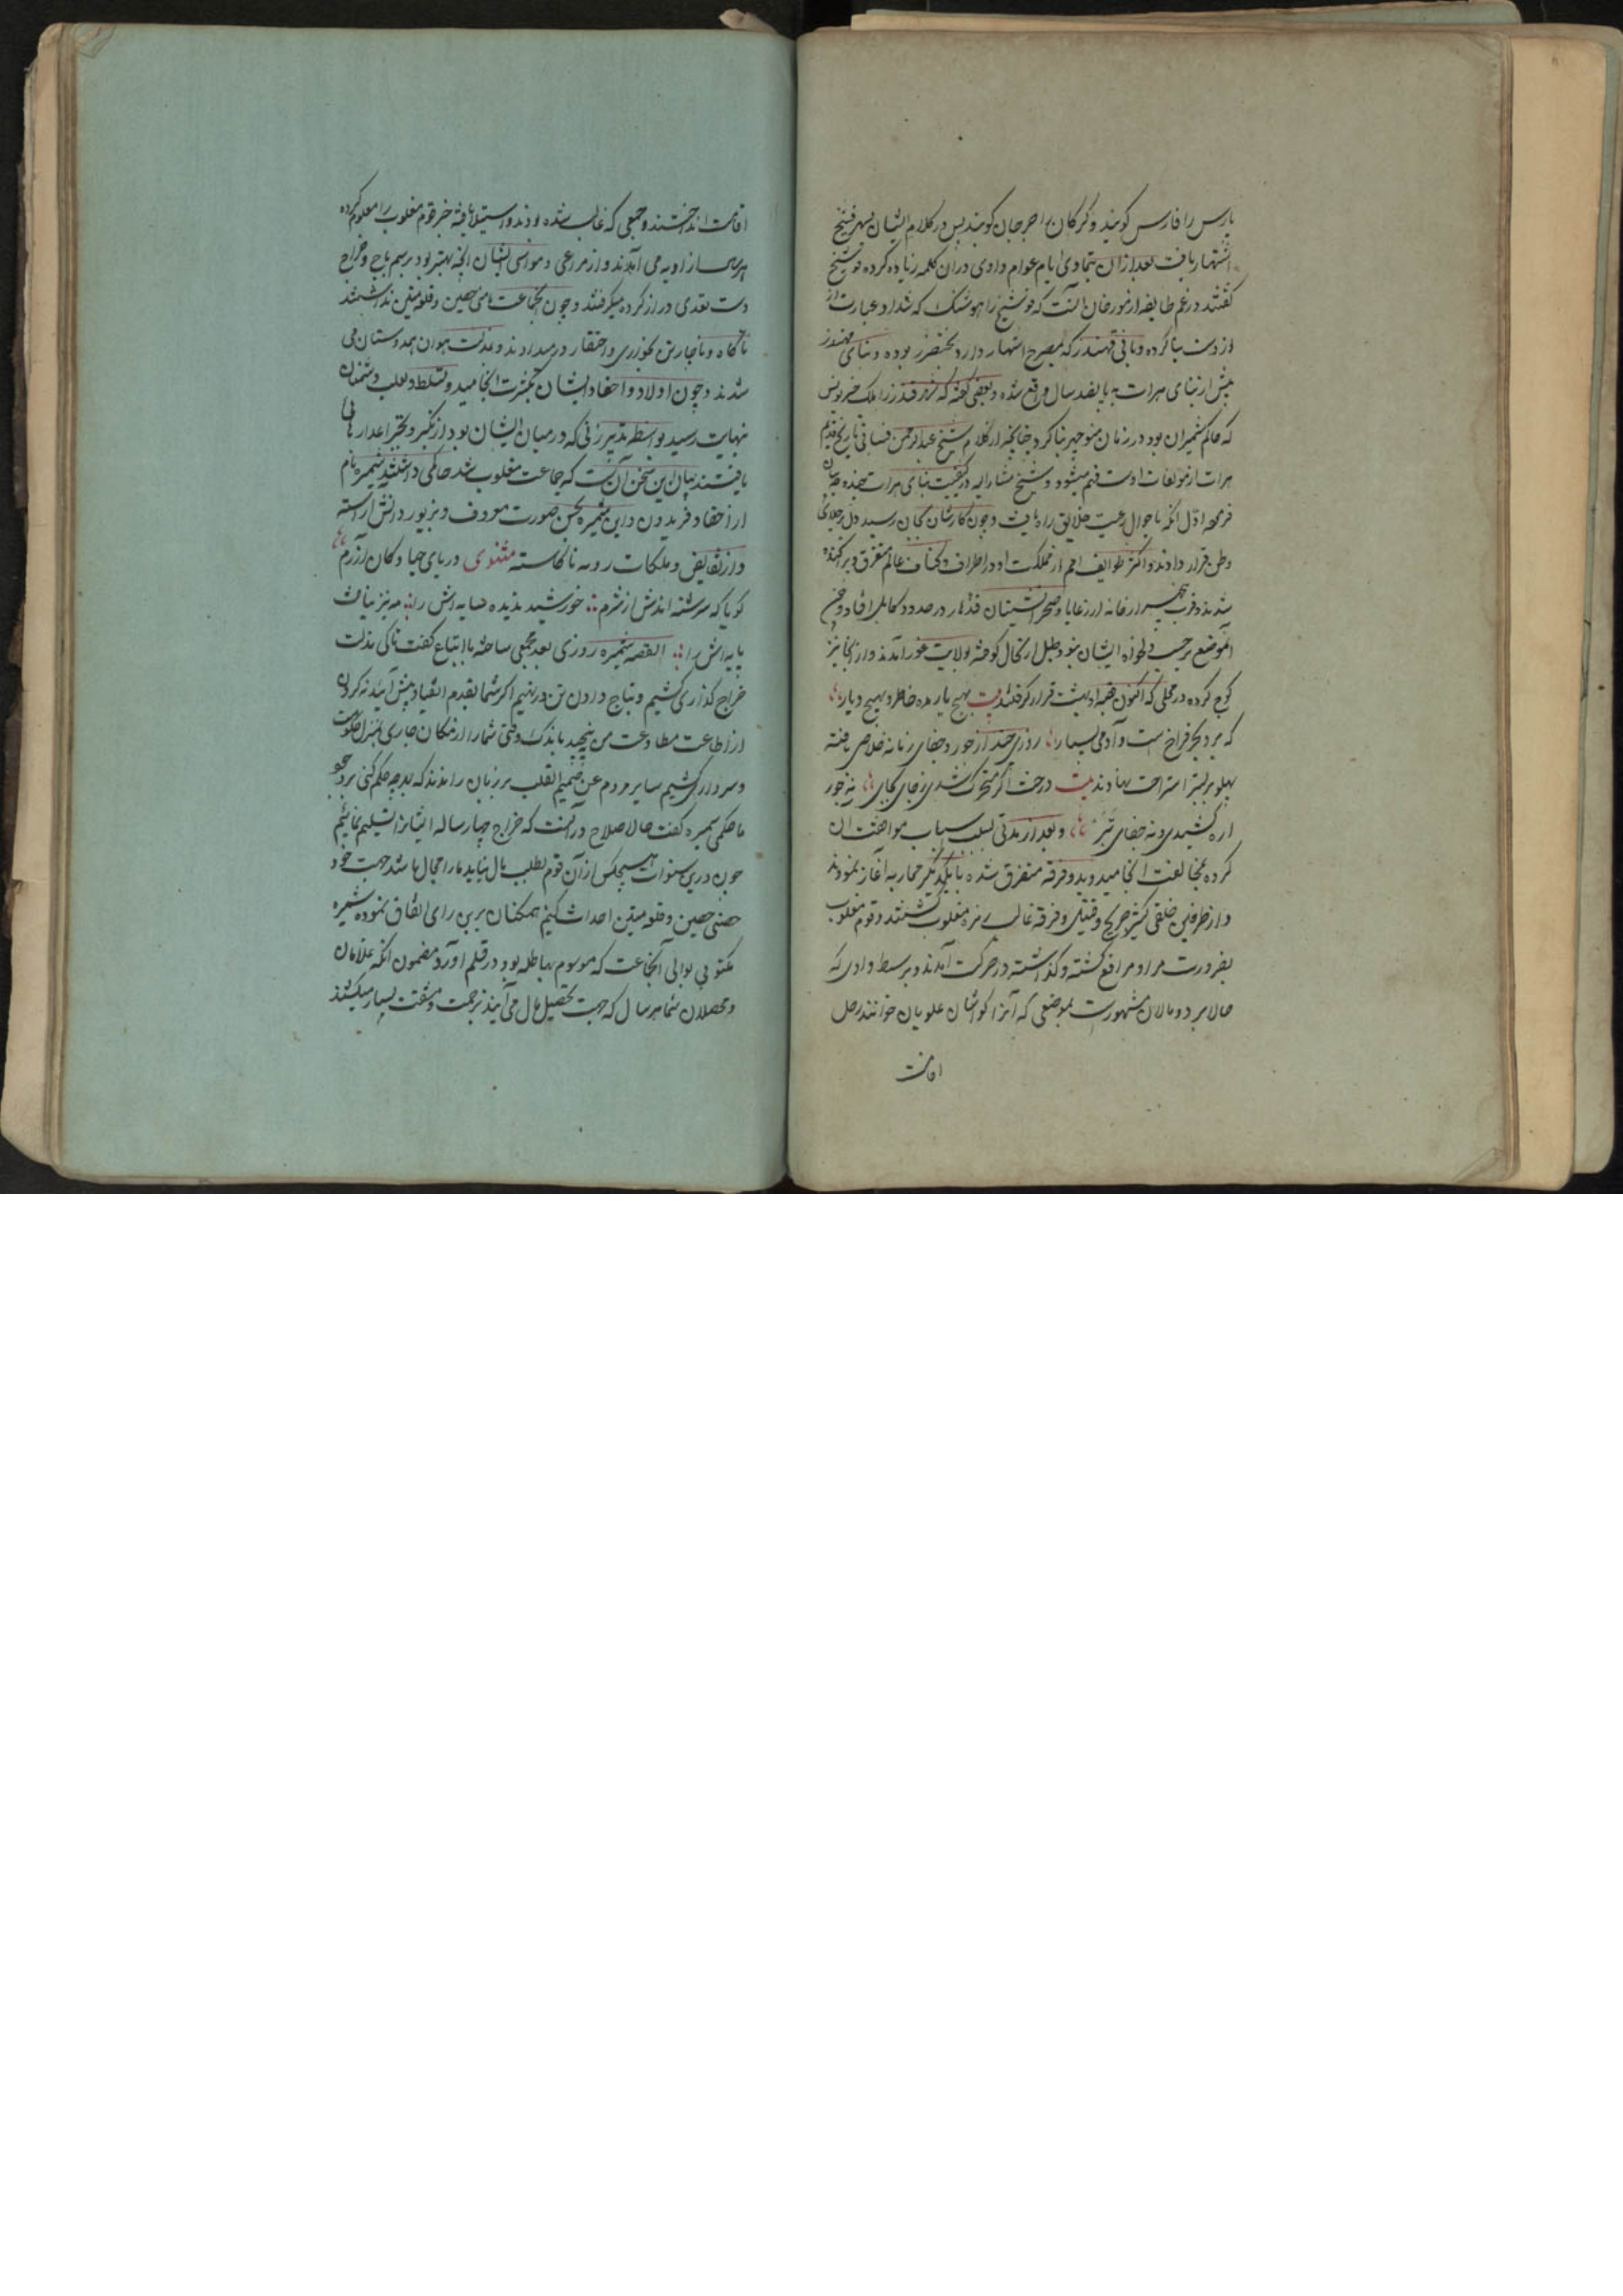 پارس را فارس کویند و کرکان را جرجان کویند پس در کلام ایشان بهر فشنج
اشتهار یافت بعد ازان بتمادی ایام عوام واوی دران کلمه زیاده کرده فوشنج
کفتند و زعم طایفه از مورخان آنست که فوشنج را هوشنک که شداد عبارت از
اوست بنا کرده و بانی قهندز که بمصرح اشتهار دارد بوده و بنای قهندز
پیش از بنای هرات به پانصد سال واقع شده و بعضی کفته که قهندز را ملک خرنوش
که حاکم شمیران بود در زمان منوچهر بنا کرد چنانچه از کلام شیخ عبدالرحمن فسانی تاریخ قدیم
هرات از مولفات اوست فهم میشود و شیخ مشارالیه در کیفیت بنای هرات هجده وجه بیان
فرموده اول آنکه باحوال رعیت خلایق راه یافت و چون کارشان بجان رسید دل بر جلای
وطن قرار دادند و اکثر طوایف امم از مملکت او در اطراف و اکناف عالم متفرق و پراکنده
شدند و قریب پنجهزار خانه از رعایا و صحرانشینان قندهار در حدود کابل افتاد و چون
آنموضع برحسب دلخواه ایشان نبود طبل ارتحال کوفته بولایت غور آمدند و از آنجا نیز
کوچ کرده در محلی که اکنون قصبه اوبهست قرار کرفتند بیت بهیچ یار مده خاطر و بهیچ دیار
که بر و بحر فراخ است و آدمی بسیار روزی چند از جور و جفای زمانه خلاصی یافته
پهلو بر بستر استراحت نهادند بیت درخت اکر متحرک شدی ز جای بجای نه جور
اره کشیدی و نه جفای تبر و بعد از مدتی بسبب اسباب موافقت ان
کرده بمخالفت انجامید و بدو فرقه متفرق شده با یکدیکر محاربه آغاز نمودند
و از طرفین خلقی کثیر جریح و قتیل و فرقه غالب و زمره مغلوب کشتند و قوم مغلوب
بضرورت مراومرافع کشته و کذاشته در حرکت آمدند و بر بسط وادی که
حالا برود مالان مشهورست بموضعی که آنرا کواشان علویان خوانند رحل
اقامت
اقامت انداختند و جمعی که غالب شده بودند و استیلا یافته خبر قوم مغلوب را معلوم کرده
هر سال از اوبه می آمدند و از مراعی و مواشی ایشان آنچه بهتر بود برسم باج و خراج
دست تعدی دراز کرده میکرفتند و چون آنجماعت مامنی حصین و قلعه متین نداشتند
ناکاه و ناچار تن بخواری و احتقار در میدادند و بمذلت هوان همداستان می
شدند و چون اولاد و احفاد ایشان بکثرت انجامید و تسلط و تغلب دشمنان
نهایت رسید بواسطه تدبیر زنی که در میان ایشان بود از تکبر و تجبر اعدا رهائی
یافتند بیان این سخن آن است که جماعت مغلوب شد حاکمی داشتند شمیره نام
از احفاد فریدون و این شمیره بحسن صورت معروف و بزیور دانش آراسته
و از نقایض و ملکات رویه ناکاسته مثنوی دریای حیا و کان آزرم
کویا که سرشته اندش از شرم خورشید ندیده سایه اش را مه نیز نیافت
پایه اش را القصه شمیره روزی بعد مجمعی ساخته با اتباع کفت تا کی بذلت
خراج کذاری کشیم و بباج دادن تن در نهیم اکر شما بقدم انقیاد پیش آئید و کردن
از اطاعت مطاوعت من نپیچید باندک وقتی شما را از مکان خاری بمنزل حکومت
و سرداری کشیم سایر مردم عن صمیم القلب بر زبان راندند که بهرچه حکم کنی بر وجود
ما حکمی شمیره کفت حالا صلاح در آنست که خراج چهار ساله ایشانرا تسلیم نمائیم
چون درین سنوات هیچکس از آن قوم بطلب مال نیاید ما را مجال باشد جهت خود
حصنی حصین و قلعه متین احداث کنیم همکنان برین رای اتفاق نموده شمیره
مکتوبی بوالی آنجماعت که موسوم بهاطله بود در قلم آورد مضمون آنکه غلامان
و محصلان شما هر سال که جهت تحصیل مال می آیند زحمت و مشقت بسیار میکشند